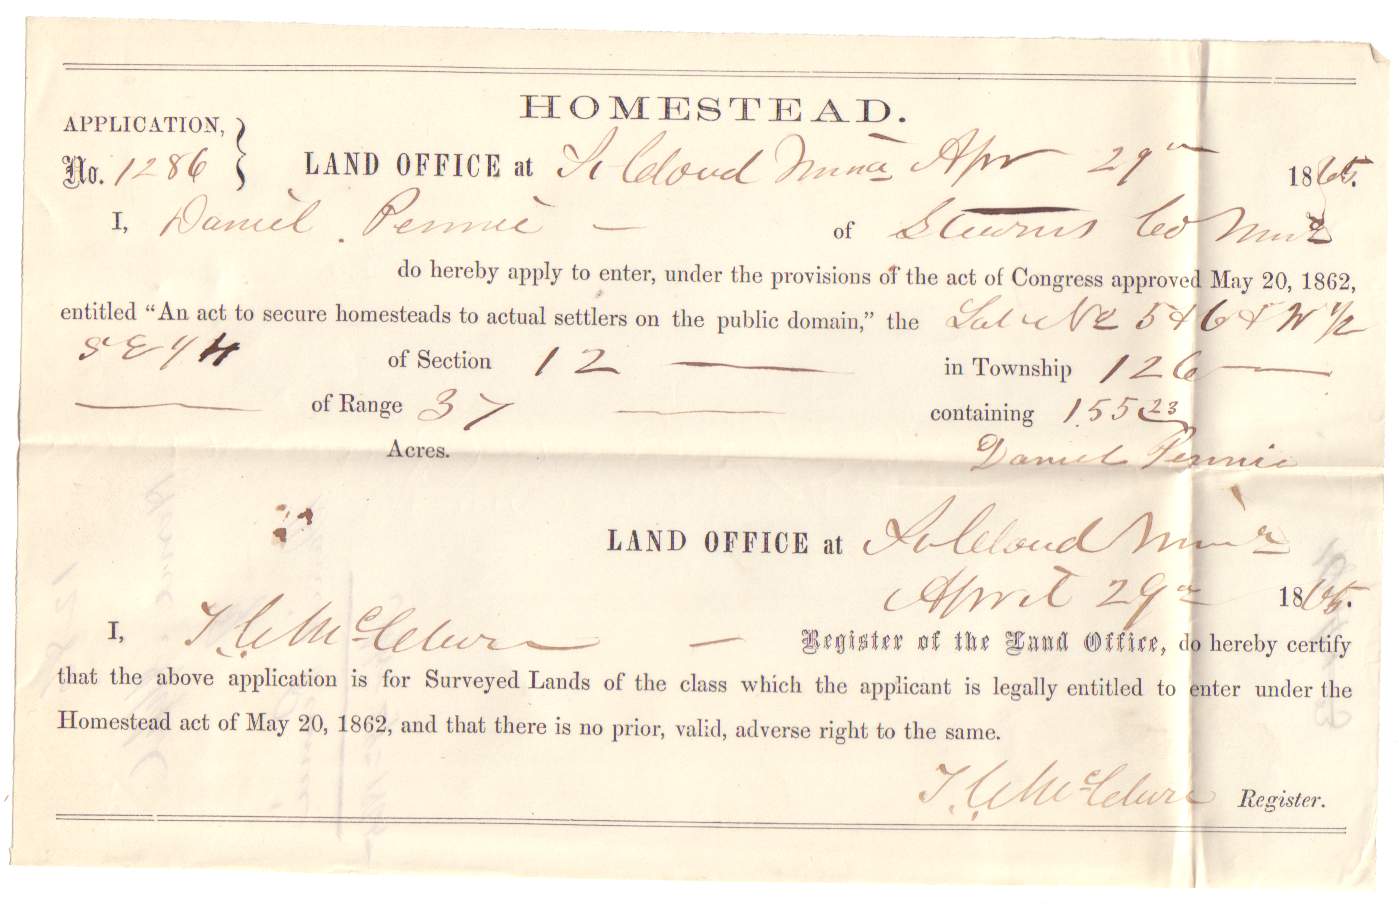 HOMESTEAD.
APPLICATION,
No. 1286
LAND OFFICE at St Cloud Minna Apr 29th 1865.
I, Daniel Pennie — of Stearns Co Minna
do hereby apply to enter, under the provisions of the act of Congress approved May 20, 1862,
entitled “An act to secure homesteads to actual settlers on the public domain,” the Lots No 5 & 6 & W 1/2
S E 1/4 of Section 12 — in Township 126 —
— of Range 37 — containing 155 23
Acres.
Daniel Pennie
LAND OFFICE at St Cloud Minna
April 29th 1865.
I, T. C. McClure — Register of the Land Office, do hereby certify
that the above application is for Surveyed Lands of the class which the applicant is legally entitled to enter under the
Homestead act of May 20, 1862, and that there is no prior, valid, adverse right to the same.
T. C. McClure Register.